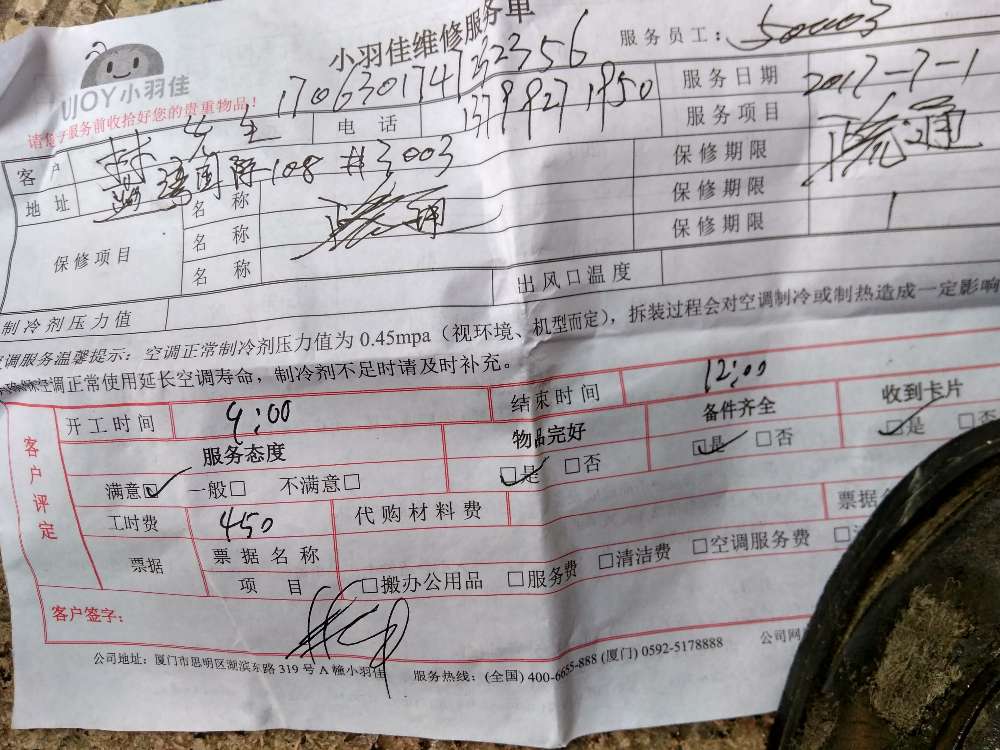 小羽佳维修服务单
UJOY小羽佳
服务员工： 50003
170630174732356
请在服务前收拾好您的贵重物品！
服务日期 2017-7-1
客户 林先生 电话 13799271950 服务项目 疏通
地址 国际108#3003 保修期限
保修项目 名称 疏通 保修期限
名称 保修期限 1
名称
制冷剂压力值 出风口温度
空调服务温馨提示：空调正常制冷剂压力值为 0.45mpa（视环境、机型而定），拆装过程会对空调制冷或制热造成一定影响
空调正常使用延长空调寿命，制冷剂不足时请及时补充。
客户评定
开工时间 9:00 结束时间 12:00
服务态度 物品完好 备件齐全 收到卡片
满意☑ 一般□ 不满意□ ☑是 □否 ☑是 □否 ☑是 □否
工时费 450 代购材料费 票据
票据 票据名称
项目 □搬办公用品 □服务费 □清洁费 □空调服务费
客户签字：
公司地址：厦门市思明区湖滨东路 319 号 A 幢小羽佳 服务热线：(全国) 400-6655-888 (厦门) 0592-5178888 公司网